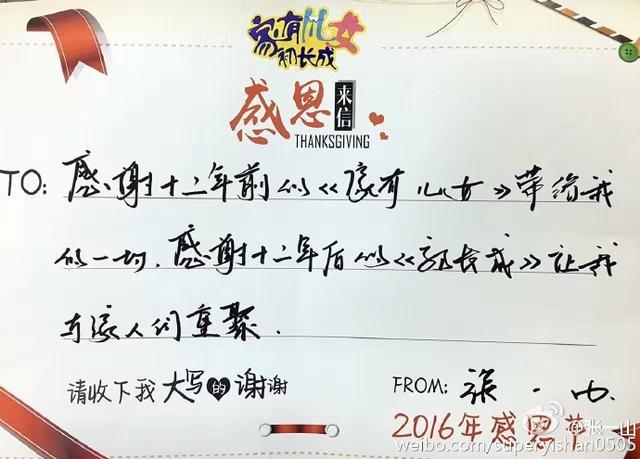 家有儿女
初长成
感恩来信
THANKSGIVING
TO: 感谢十二年前的《家有儿女》带给我
的一切，感谢十二年后的《初长成》让我
与家人们重聚.
请收下我大写的谢谢
FROM: 张一山.
2016年感恩节
@张一山
weibo.com/superyishan0505